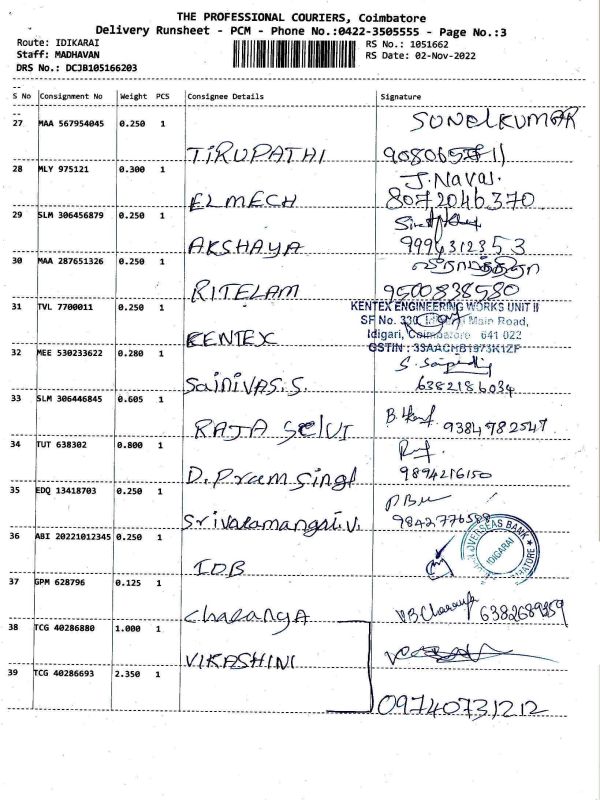 THE PROFESSIONAL COURIERS, Coimbatore
Delivery Runsheet - PCM - Phone No.:0422-3505555 - Page No.:3
Route: IDIKARAI
RS No.: 1051662
Staff: MADHAVAN
RS Date: 02-Nov-2022
DRS No.: DCJB105166203
S No Consignment No Weight PCS Consignee Details Signature
27 MAA 567954045 0.250 1 TIRUPATHI SUNELKUMAR
28 MLY 975121 0.300 1 ELMECH J. Naval.
8072046370
29 SLM 306456879 0.250 1 AKSHAYA
9994312353
30 MAA 287651326 0.250 1 RITELAM
9500838580
31 TVL 7700011 0.250 1 KENTEX
KENTEX ENGINEERING WORKS UNIT II
SF No. 330, Idigarai Main Road,
Idigari, Coimbatore 641 022
GSTIN : 33AACHB1973K1ZF
32 MEE 530233622 0.280 1 Sainivas.S.
6382186034
33 SLM 306446845 0.605 1 RAJA Selvi
9384782547
34 TUT 638302 0.800 1 D. Prem Singh
9894216150
35 EDQ 13418703 0.250 1 Srivaramangai.V.
36 ABI 20221012345 0.250 1 IOB
OVERSEAS BANK
IDIGARAI
37 GPM 628796 0.125 1 Charanya
38 TCG 40286880 1.000 1 VIKASHINI
39 TCG 40286693 2.350 1
09740731212